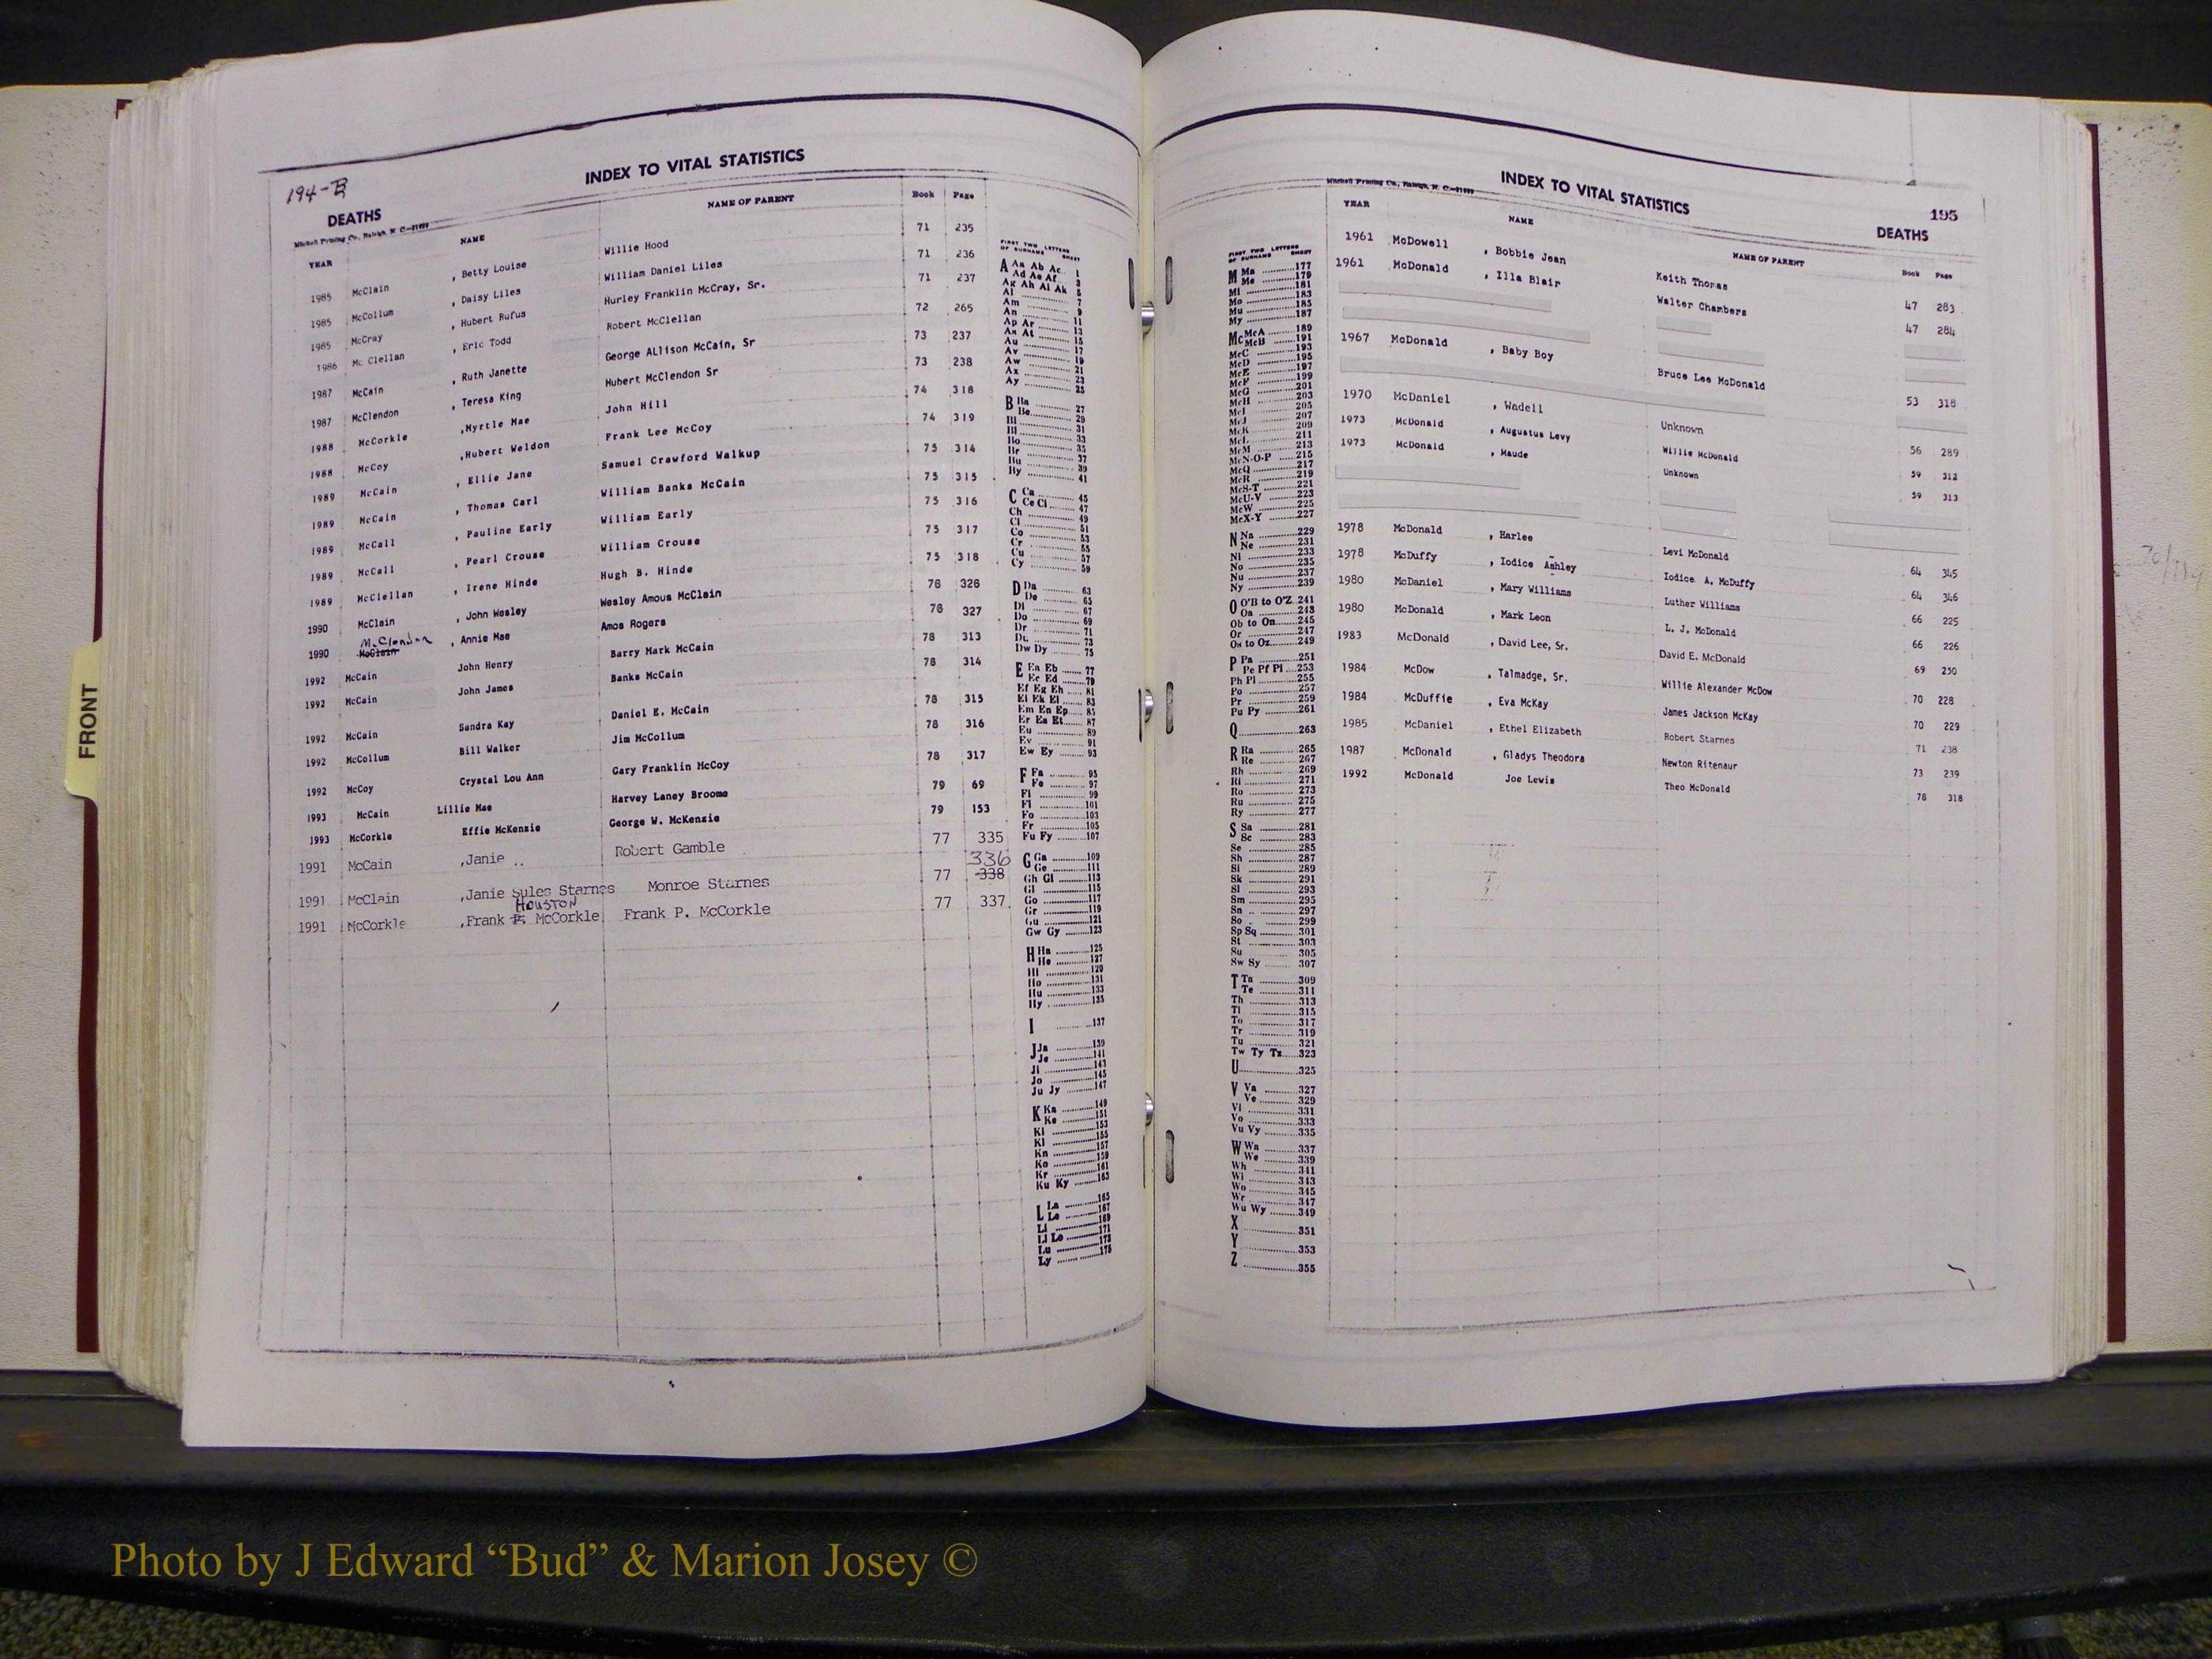 194-B
INDEX TO VITAL STATISTICS
DEATHS
Mitchell Printing Co., Raleigh, N. C.
YEAR NAME NAME OF PARENT Book Page
1985 McClain , Betty Louise Willie Hood 71 235
1985 McCollum , Daisy Liles William Daniel Liles 71 236
1985 McCray , Hubert Rufus Hurley Franklin McCray, Sr. 71 237
1986 Mc Clellan , Eric Todd Robert McClellan 72 265
1987 McCain , Ruth Janette George ALlison McCain, Sr 73 237
1987 McClendon , Teresa King Hubert McClendon Sr 73 238
1988 McCorkle ,Myrtle Mae John Hill 74 318
1988 McCoy ,Hubert Weldon Frank Lee McCoy 74 319
1989 McCain , Ellie Jane Samuel Crawford Walkup 75 314
1989 McCain , Thomas Carl William Banks McCain 75 315
1989 McCall , Pauline Early William Early 75 316
1989 McCall , Pearl Crouse William Crouse 75 317
1989 McClellan , Irene Hinde Hugh B. Hinde 75 318
1990 McClain , John Wesley Wesley Amous McClain 76 326
1990 McClendon McClain , Annie Mae Amos Rogers 76 327
1992 McCain John Henry Barry Mark McCain 78 313
1992 McCain John James Banks McCain 78 314
1992 McCain Sandra Kay Daniel E. McCain 78 315
1992 McCollum Bill Walker Jim McCollum 78 316
1992 McCoy Crystal Lou Ann Gary Franklin McCoy 78 317
1993 McCain Lillie Mae Harvey Laney Broome 79 69
1993 McCorkle Effie McKenzie George W. McKenzie 79 153
1991 McCain ,Janie .. Robert Gamble 77 335
336
1991 McClain ,Janie Sules Starnes Monroe Starnes 77 338
HOUSTON
1991 McCorkle ,Frank P. McCorkle Frank P. McCorkle 77 337
FIRST TWO LETTERS
OF SURNAME SHEET
A Aa Ab Ac 1
Ad Ae Af 3
Ag Ah Ai Ak 5
Al 7
Am 9
An 11
Ap Ar 13
As At 15
Au 17
Av 19
Aw 21
Ax 23
Ay 25
B Ba 27
Be 29
Bi 31
Bl 33
Bo 35
Br 37
Bu 39
By 41
C Ca 45
Ce Ci 47
Ch 49
Cl 51
Co 53
Cr 55
Cu 57
Cy 59
D Da 63
De 65
Di 67
Do 69
Dr 71
Du 73
Dw Dy 75
E Ea Eb 77
Ec Ed 79
Ef Eg Eh 81
Ei Ek El 83
Em En Ep 85
Er Es Et 87
Eu 89
Ev 91
Ew Ey 93
F Fa 95
Fe 97
Fi 99
Fl 101
Fo 103
Fr 105
Fu Fy 107
G Ga 109
Ge 111
Gh Gi 113
Gl 115
Go 117
Gr 119
Gu 121
Gw Gy 123
H Ha 125
He 127
Hi 129
Ho 131
Hu 133
Hy 135
I 137
J Ja 139
Je 141
Ji 143
Jo 145
Ju Jy 147
K Ka 149
Ke 151
Ki 153
Kl 155
Kn 157
Ko 159
Kr 161
Ku Ky 163
L La 165
Le 167
Li 169
Ll Lo 171
Lu 173
Ly 175
FRONT
Mitchell Printing Co., Raleigh, N. C.
INDEX TO VITAL STATISTICS
195
DEATHS
YEAR NAME NAME OF PARENT Book Page
1961 McDowell , Bobbie Jean Keith Thomas 47 283
1961 McDonald , Illa Blair Walter Chambers 47 284
1967 McDonald , Baby Boy Bruce Lee McDonald 53 318
1970 McDaniel , Wadell Unknown 56 289
1973 McDonald , Augustus Levy Willie McDonald 59 312
1973 McDonald , Maude Unknown 59 313
1978 McDonald , Harlee Levi McDonald 64 345
1978 McDuffy , Iodice Ashley Iodice A. McDuffy 64 346
1980 McDaniel , Mary Williams Luther Williams 66 225
1980 McDonald , Mark Leon L. J. McDonald 66 226
1983 McDonald , David Lee, Sr. David E. McDonald 69 250
1984 McDow , Talmadge, Sr. Willie Alexander McDow 70 228
1984 McDuffie , Eva McKay James Jackson McKay 70 229
1985 McDaniel , Ethel Elizabeth Robert Starnes 71 238
1987 McDonald , Gladys Theodora Newton Ritenaur 73 239
1992 McDonald Joe Lewis Theo McDonald 78 318
FIRST TWO LETTERS
OF SURNAME SHEET
M Ma 177
Me 179
Mi 181
Mo 183
Mu 185
My 187
Mc McA 189
McB 191
McC 193
McD 195
McE 197
McF 199
McG 201
McH 203
McI 205
McJ 207
McK 209
McL 211
McM 213
McN-O-P 215
McQ 217
McR 219
McS-T 221
McU-V 223
McW 225
McX-Y 227
N Na 229
Ne 231
Ni 233
No 235
Nu 237
Ny 239
O O'B to O'Z 241
Oa 243
Ob to On 245
Or 247
Os to Oz 249
P Pa 251
Pe Pf Pi 253
Ph Pl 255
Po 257
Pr 259
Pu Py 261
Q 263
R Ra 265
Re 267
Rh 269
Ri 271
Ro 273
Ru 275
Ry 277
S Sa 281
Sc 283
Se 285
Sh 287
Si 289
Sk 291
Sl 293
Sm 295
Sn 297
So 299
Sp Sq 301
St 303
Su 305
Sw Sy 307
T Ta 309
Te 311
Th 313
Ti 315
To 317
Tr 319
Tu 321
Tw Ty Tz 323
U 325
V Va 327
Ve 329
Vi 331
Vo 333
Vu Vy 335
W Wa 337
We 339
Wh 341
Wi 343
Wo 345
Wr 347
Wu Wy 349
X 351
Y 353
Z 355
Photo by J Edward “Bud” & Marion Josey ©